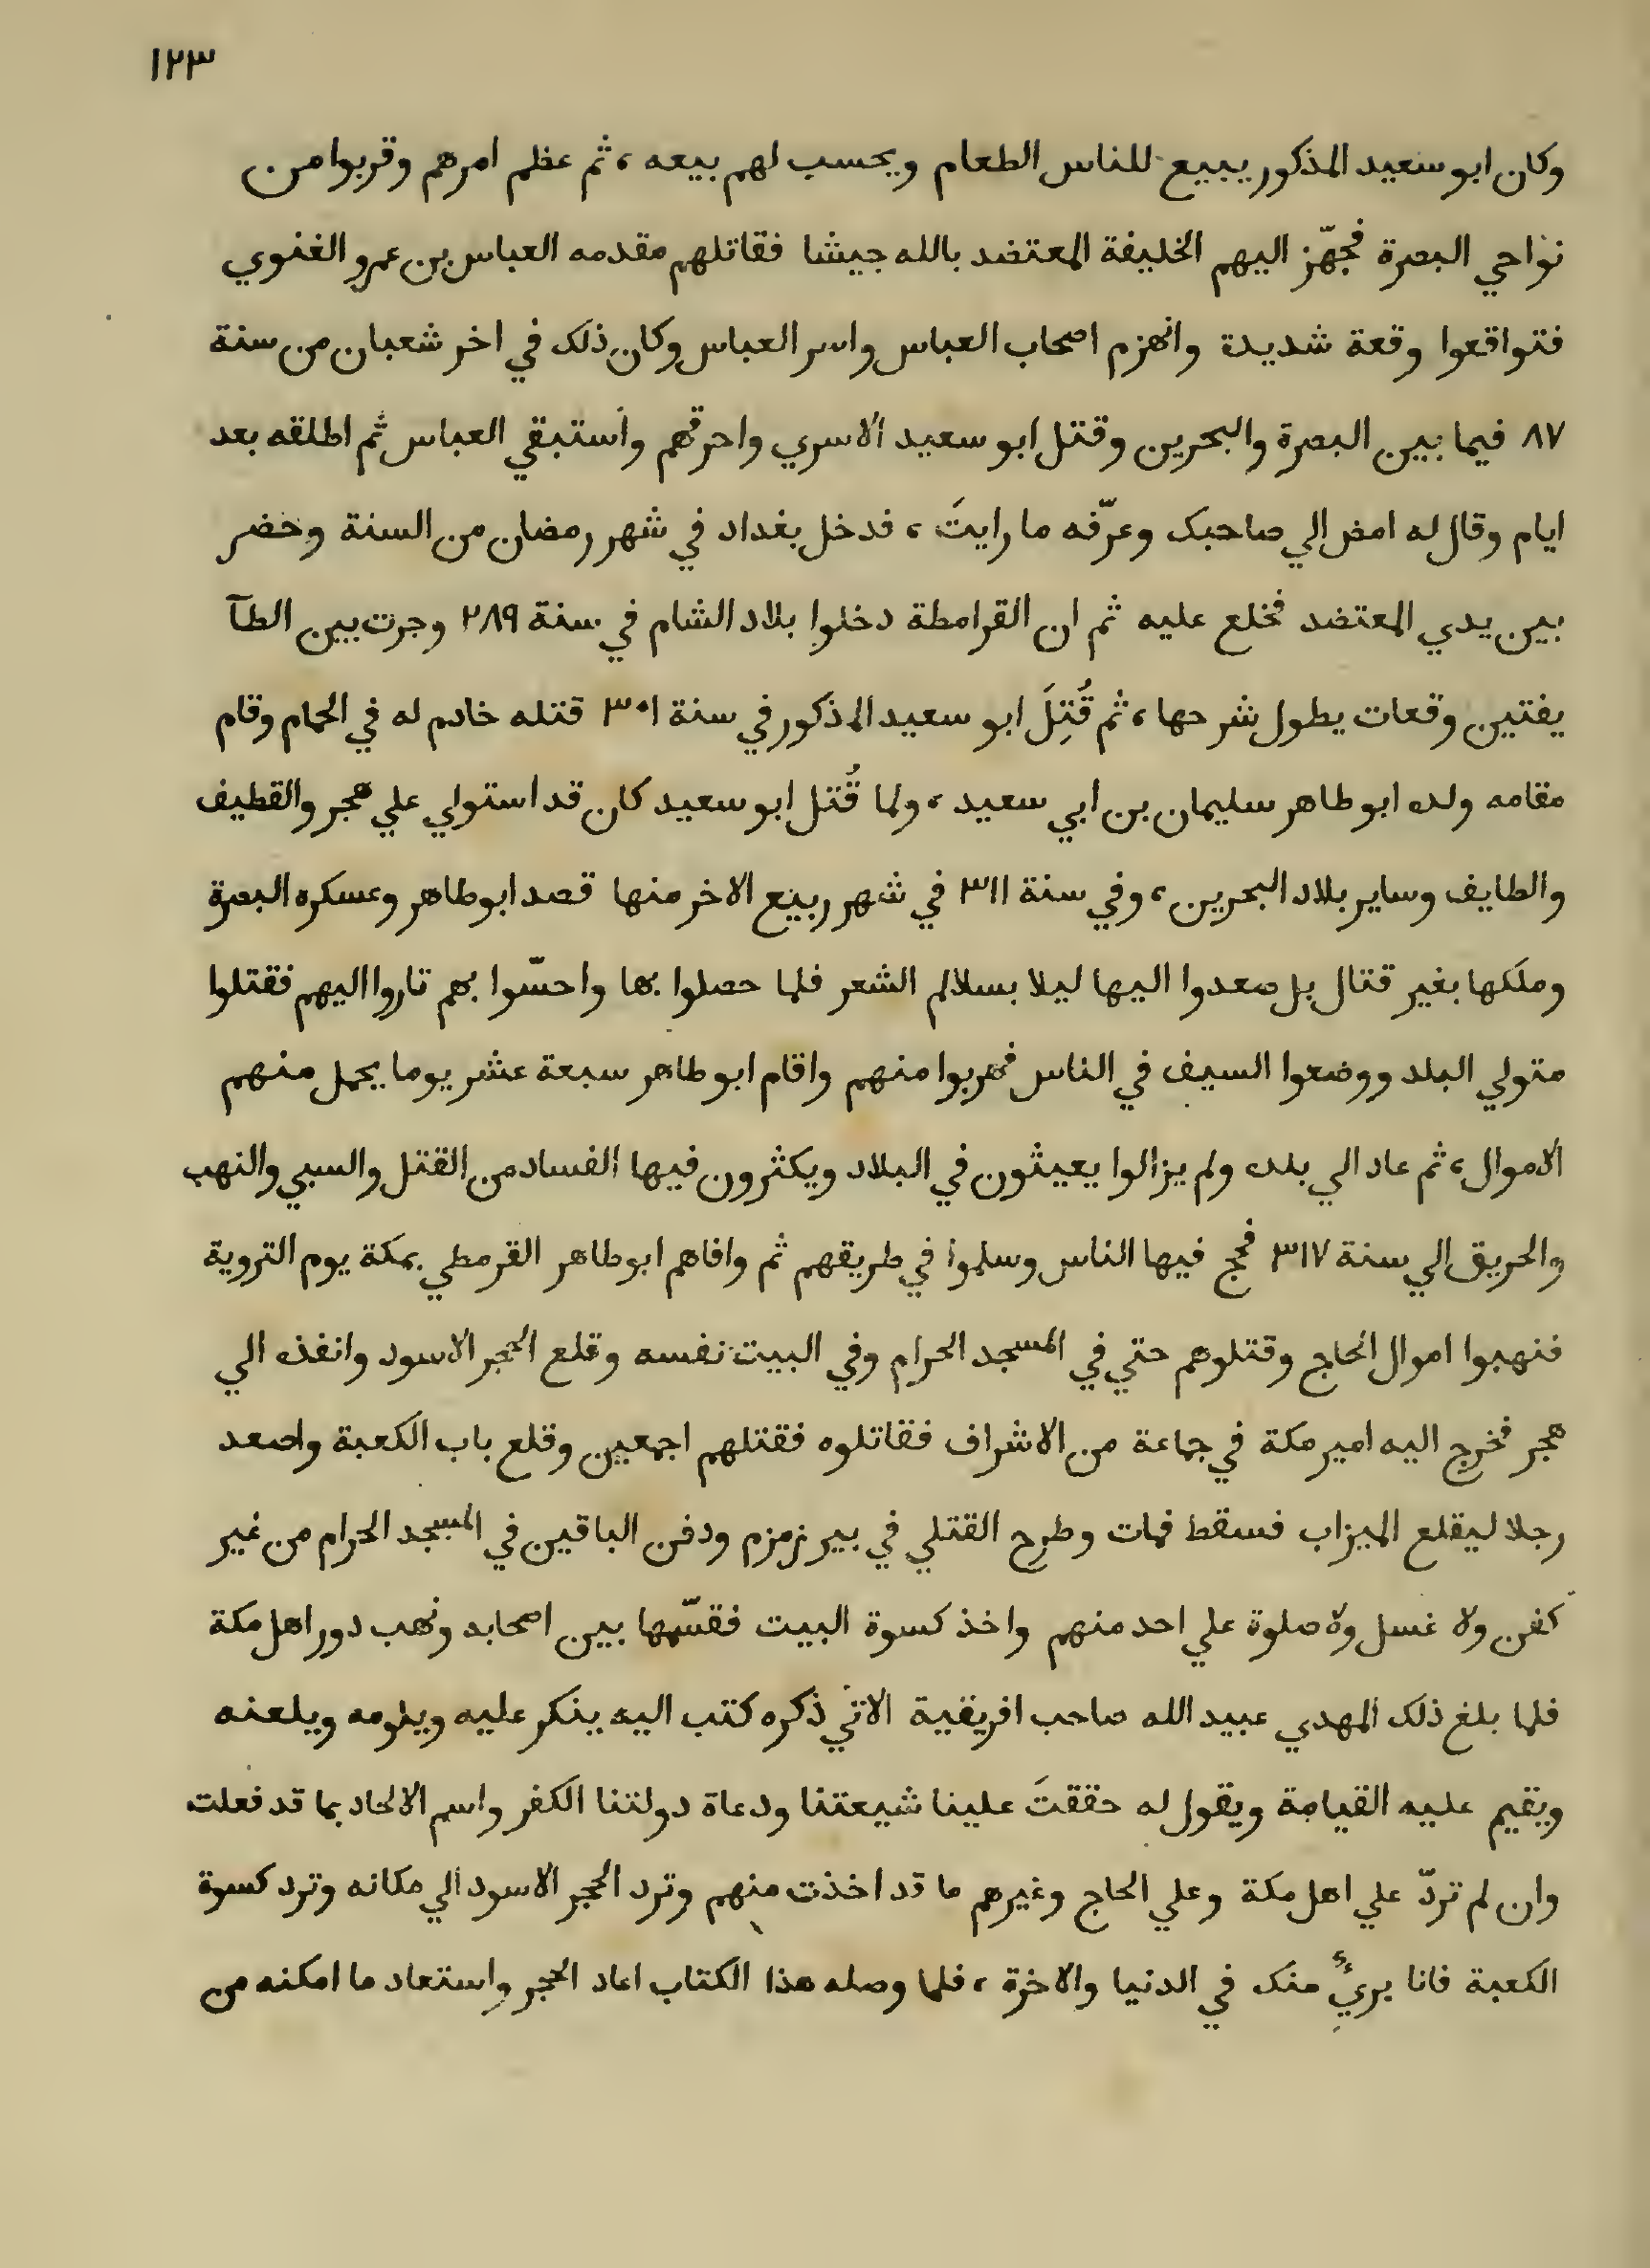 ١٢٣
وكان ابو سعيد المذكور يبيع للناس الطعام ويحسب لهم بيعه، ثم عظم امرهم وقربوا من
نواحي البصرة فجهّز اليهم الخليفة المعتضد بالله جيشا فقاتلهم مقدمه العباس بن عمرو الغنوي
فتواقعوا وقعة شديدة وانهزم اصحاب العباس واسر العباس وكان ذلك في اخر شعبان من سنة
٨٧ فيما بين البصرة والبحرين وقتل ابو سعيد الاسري واحرقهم واستبقي العباس ثم اطلقه بعد
ايام وقال له امض الي صاحبك وعرّفه ما رايتَ، فدخل بغداد في شهر رمضان من السنة وحضر
بين يدي المعتضد فخلع عليه ثم ان القرامطة دخلوا بلاد الشام في سنة ٢٨٩ وجرت بين الطآ
يفتين وقعات يطول شرحها، ثم قُتِلَ ابو سعيد المذكور في سنة ٣٠١ قتله خادم له في الحمام وقام
مقامه ولده ابو طاهر سليمان بن ابي سعيد، ولما قُتل ابو سعيد كان قد استولي علي هجر والقطيف
والطايف وساير بلاد البحرين، وفي سنة ٣١١ في شهر ربيع الاخر منها قصد ابو طاهر وعسكره البصرة
وملكها بغير قتال بل صعدوا اليها ليلا بسلالم الشعر فلما حصلوا بها واحسّوا بهم ثاروا اليهم فقتلوا
متولي البلد ووضعوا السيف في الناس فهربوا منهم واقام ابو طاهر سبعة عشر يوما يحمل منهم
الاموال، ثم عاد الي بلده ولم يزالوا يعيثون في البلاد ويكثرون فيها الفساد من القتل والسبي والنهب
والحريق الي سنة ٣١٧ فحج فيها الناس وسلموا في طريقهم ثم وافاهم ابو طاهر القرمطي بمكة يوم التروية
فنهبوا اموال الحاج وقتلوهم حتي في المسجد الحرام وفي البيت نفسه وقلع الحجر الاسود وانفذه الي
هجر فخرج اليه امير مكة في جماعة من الاشراف فقاتلوه فقتلهم اجمعين وقلع باب الكعبة واصعد
رجلا ليقلع الميزاب فسقط فمات وطرح القتلي في بير زمزم ودفن الباقين في المسجد الحرام من غير
كفن ولا غسل ولا صلوة علي احد منهم واخذ كسوة البيت فقسّمها بين اصحابه ونهب دور اهل مكة
فلما بلغ ذلك المهدي عبيد الله صاحب افريقية الاتي ذكره كتب اليه ينكر عليه ويلومه ويلعنه
ويقيم عليه القيامة ويقول له حققتَ علينا شيعتنا ودعاة دولتنا الكفر واسم الالحاد بما قد فعلت
وان لم تردّ علي اهل مكة وعلي الحاج وغيرهم ما قد اخذت منهم وترد الحجر الاسود الي مكانه وترد كسوة
الكعبة فانا بريٌء منك في الدنيا والاخرة، فلما وصله هذا الكتاب اعاد الحجر واستعاد ما امكنه من